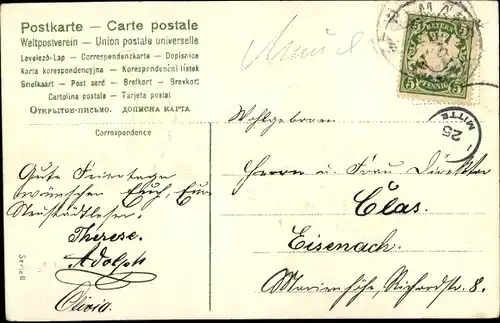 Postkarte — Carte postale
Weltpostverein — Union postale universelle
Levelező-Lap — Correspondenzkarte — Dopisnice
Karta korespondencyjna — Korespondenční lístek
Briefkaart — Post card — Brefkort — Brevkort
Cartolina postale — Tarjeta postal
Открытое-письмо. дописна карта
Correspondence
BAYERN
5 5
PFENNIG
MITTE
25
Wohlgeboren
Herrn u. Frau Direktor
Clas.
Eisenach.
Marienhöhe, Richardstr. 8.
Gute Feiertage
wünschen Euch, Eure
Neustädtlesen.
Therese.
Adolph
Olivia.
Serie 8